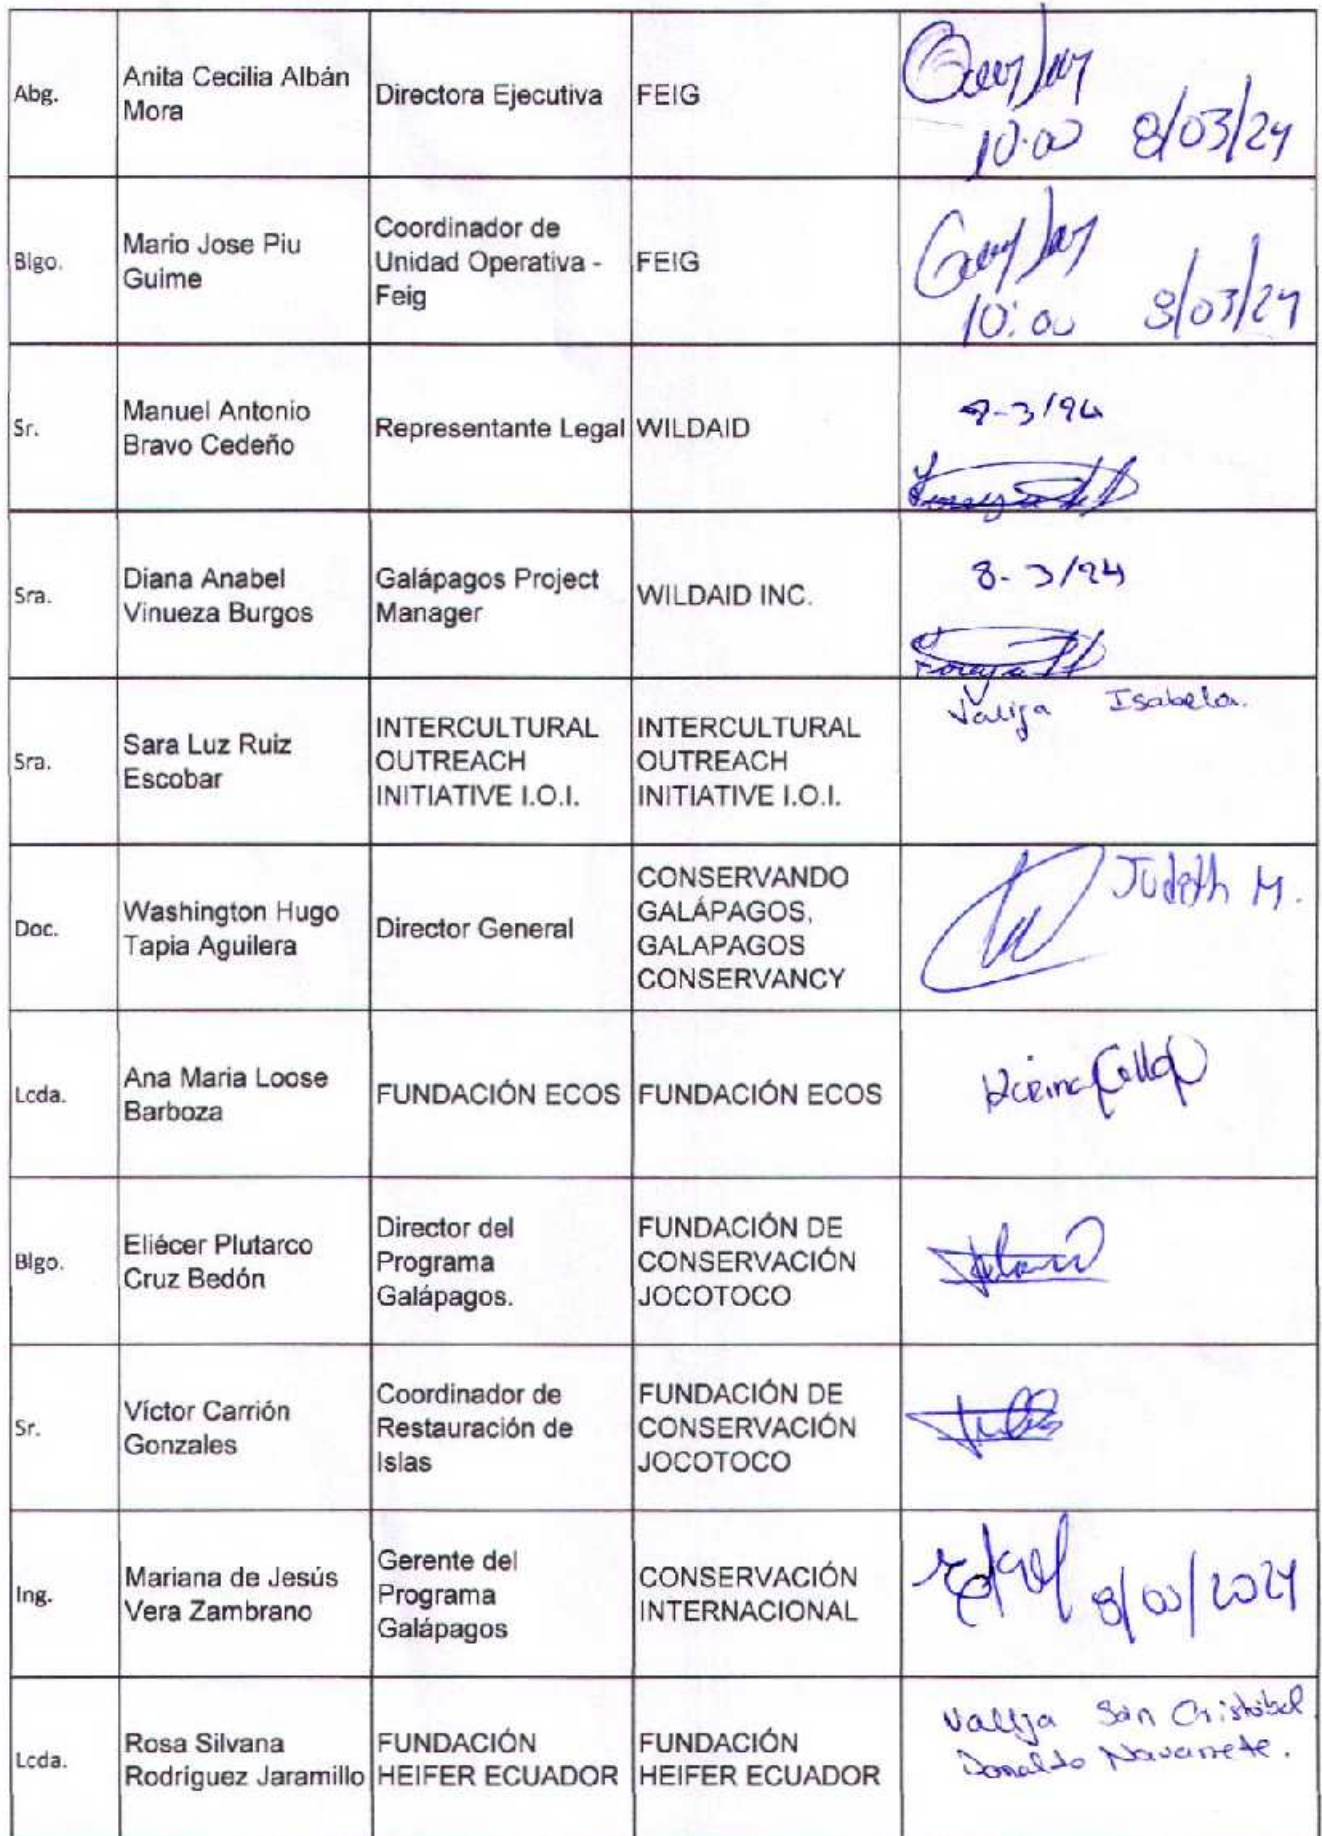 Abg.
Anita Cecilia Albán
Mora
Directora Ejecutiva
FEIG
10:00 8/03/24
Blgo.
Mario Jose Piu
Guime
Coordinador de
Unidad Operativa -
Feig
FEIG
10:00 8/03/24
Sr.
Manuel Antonio
Bravo Cedeño
Representante Legal
WILDAID
Sra.
Diana Anabel
Vinueza Burgos
Galápagos Project
Manager
WILDAID INC.
8-3/24
Sra.
Sara Luz Ruiz
Escobar
INTERCULTURAL
OUTREACH
INITIATIVE I.O.I.
INTERCULTURAL
OUTREACH
INITIATIVE I.O.I.
Valija Isabela.
Doc.
Washington Hugo
Tapia Aguilera
Director General
CONSERVANDO
GALÁPAGOS,
GALAPAGOS
CONSERVANCY
Judith M.
Lcda.
Ana Maria Loose
Barboza
FUNDACIÓN ECOS
FUNDACIÓN ECOS
Blgo.
Eliécer Plutarco
Cruz Bedón
Director del
Programa
Galápagos.
FUNDACIÓN DE
CONSERVACIÓN
JOCOTOCO
Sr.
Víctor Carrión
Gonzales
Coordinador de
Restauración de
Islas
FUNDACIÓN DE
CONSERVACIÓN
JOCOTOCO
Ing.
Mariana de Jesús
Vera Zambrano
Gerente del
Programa
Galápagos
CONSERVACIÓN
INTERNACIONAL
Lcda.
Rosa Silvana
Rodríguez Jaramillo
FUNDACIÓN
HEIFER ECUADOR
FUNDACIÓN
HEIFER ECUADOR
Valija San Cristóbal
Donaldo Navarrete.